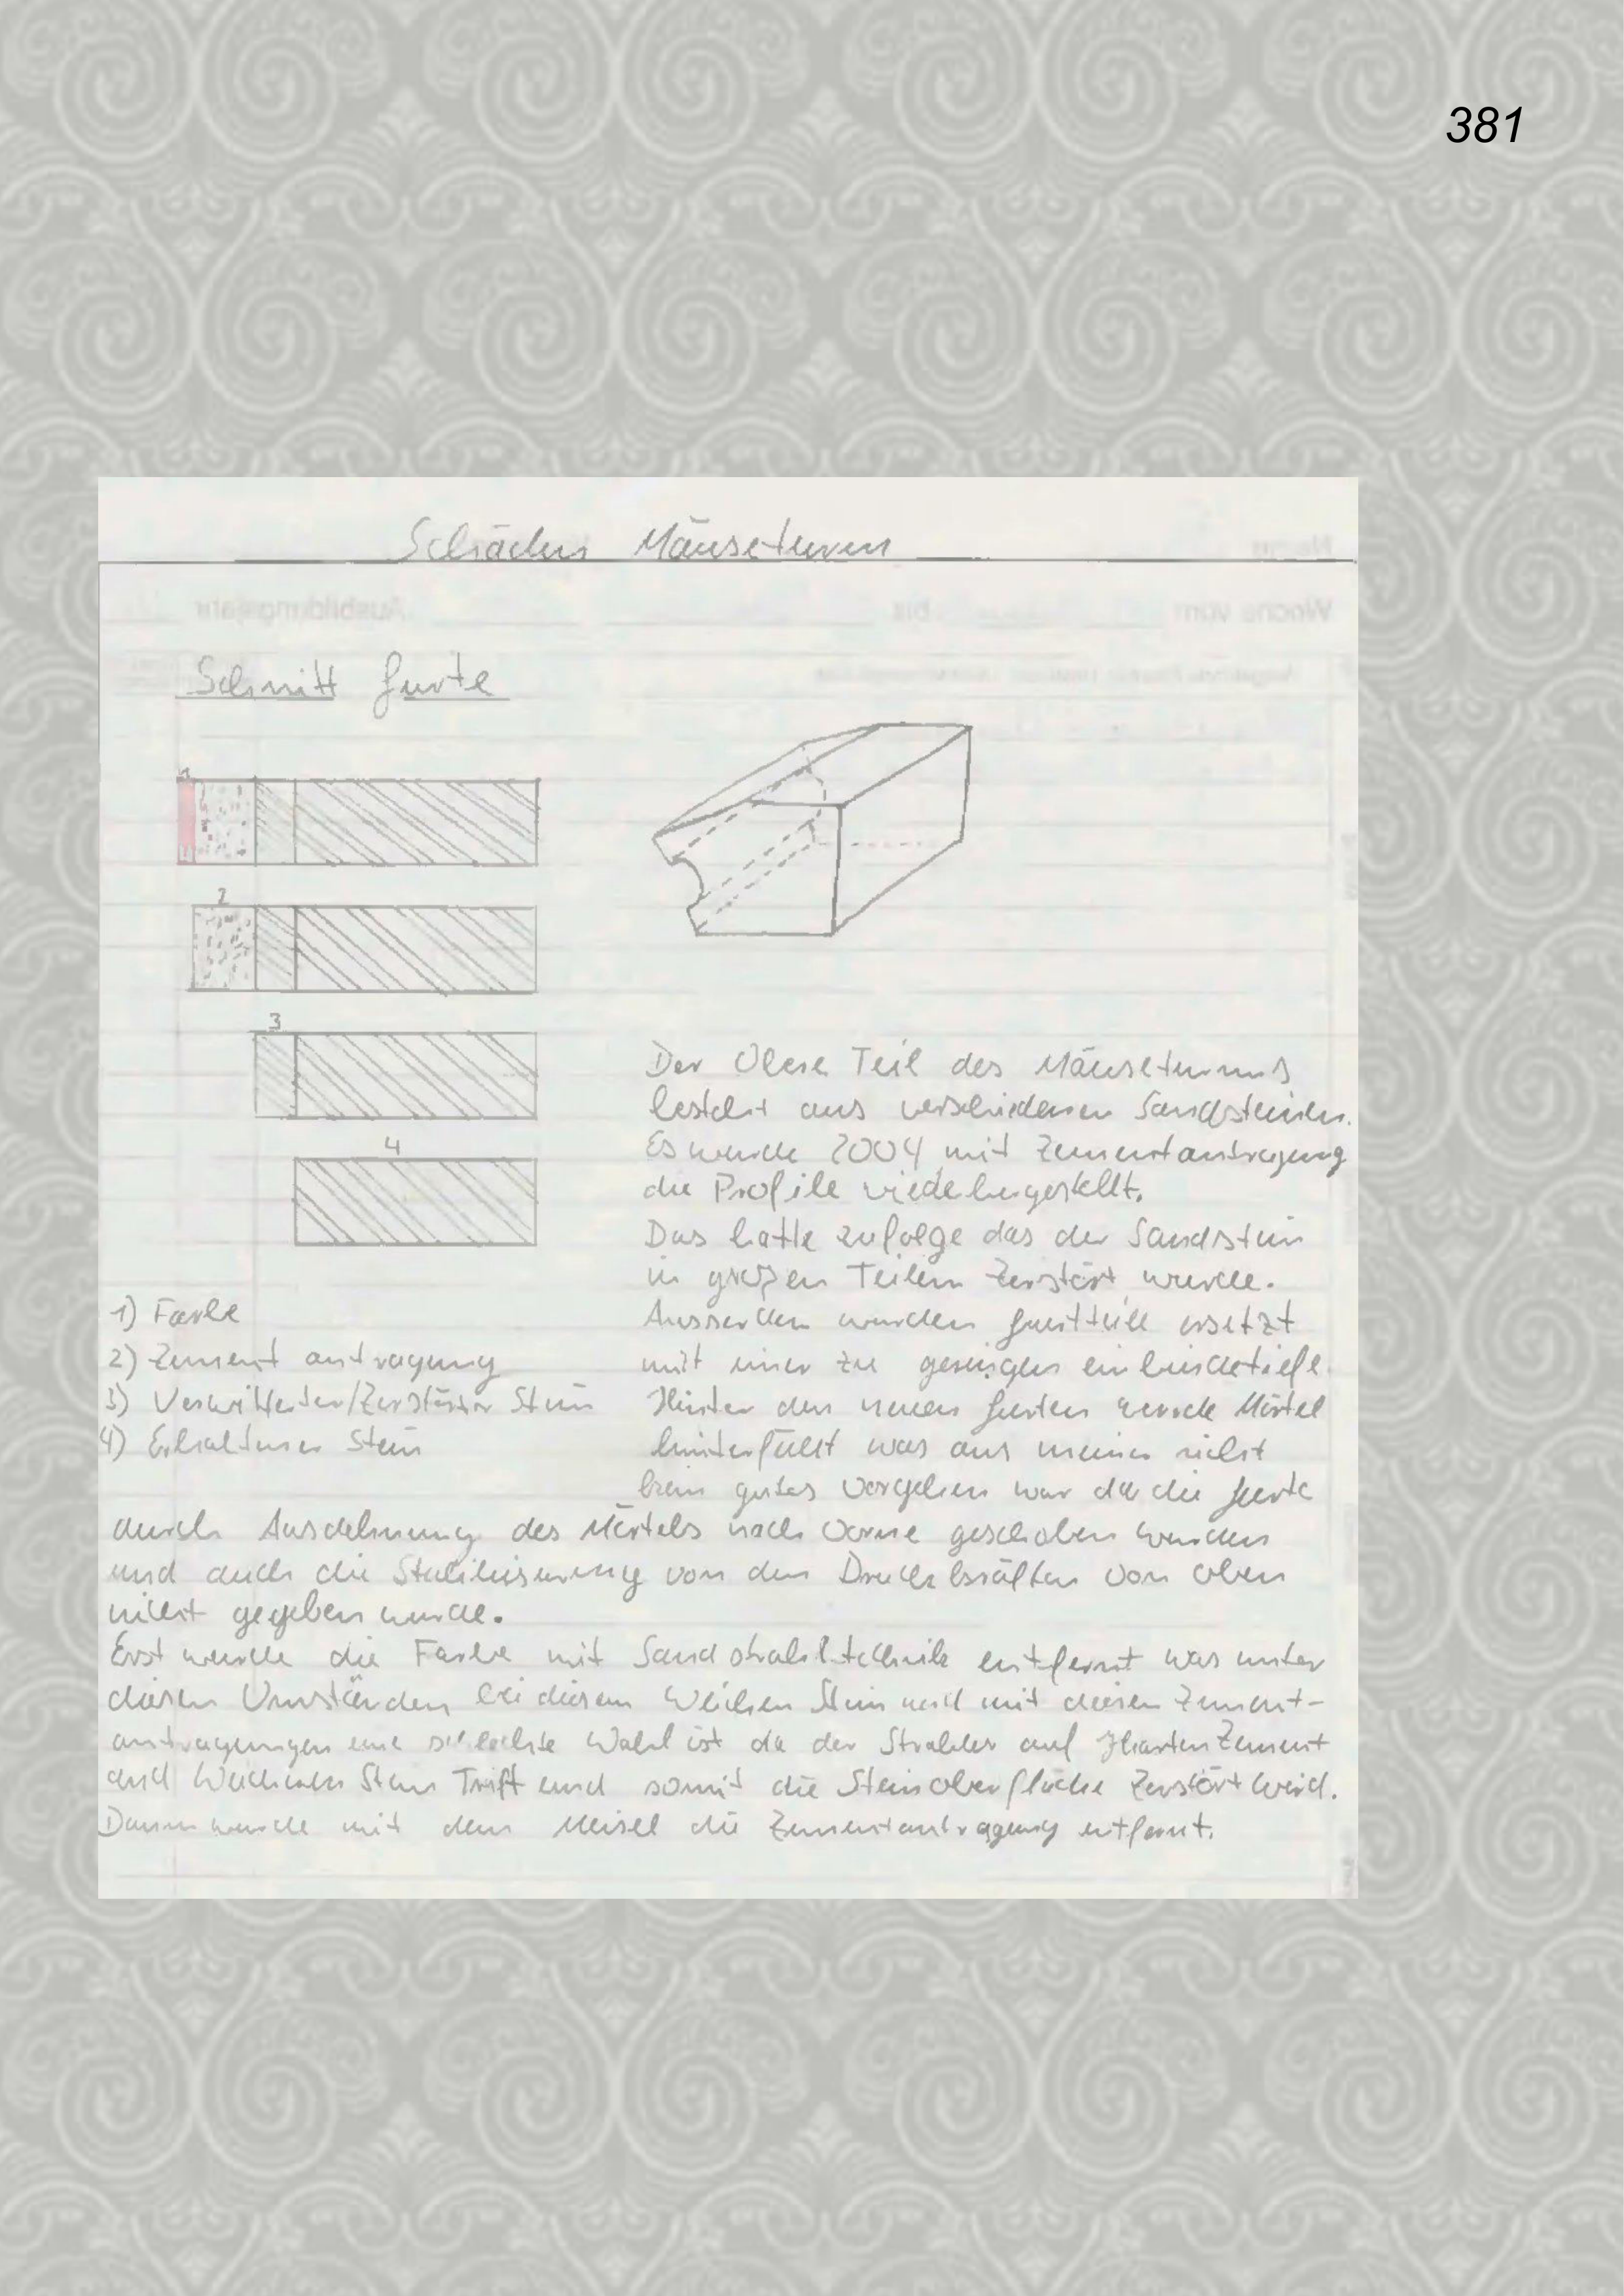 381
Schäden Mäuseturm
Schnitt gurte
1
2
3
4
1) Farbe
2) Zement antragung
3) Verwitterter/Zerstörter Stein
4) Erhaltener Stein
Der Obere Teil des Mäuseturms
besteht aus verschiedenen Sandsteinen.
Es wurde 2004 mit Zementantragung
die Profile wiedehergestellt.
Das hatte zufolge das der Sandstein
in großen Teilen Zerstört wurde.
Ausserdem wurden gurtteile ersetzt
mit einer zu geringen einbindetiefe.
Hinter den neuen gurten wurde Mörtel
hinterfüllt was aus meiner sicht
kein gutes Vorgehen war da die gurte
durch Ausdehnung des Mörtels nach Vorne geschoben wurden
und auch die Stabilisierung von den Druckkräften von oben
nicht gegeben wurde.
Erst wurde die Farbe mit Sandstrahltechnik entfernt was unter
diesen Umständen bei diesem Weichen Stein und mit diesen Zement-
antragungen eine schlechte Wahl ist da der Strahler auf Harten Zement
und Weicheren Stein Trift und somit die Steinoberfläche Zerstört wird.
Dann wurde mit dem Meisel die Zementantragung entfernt.